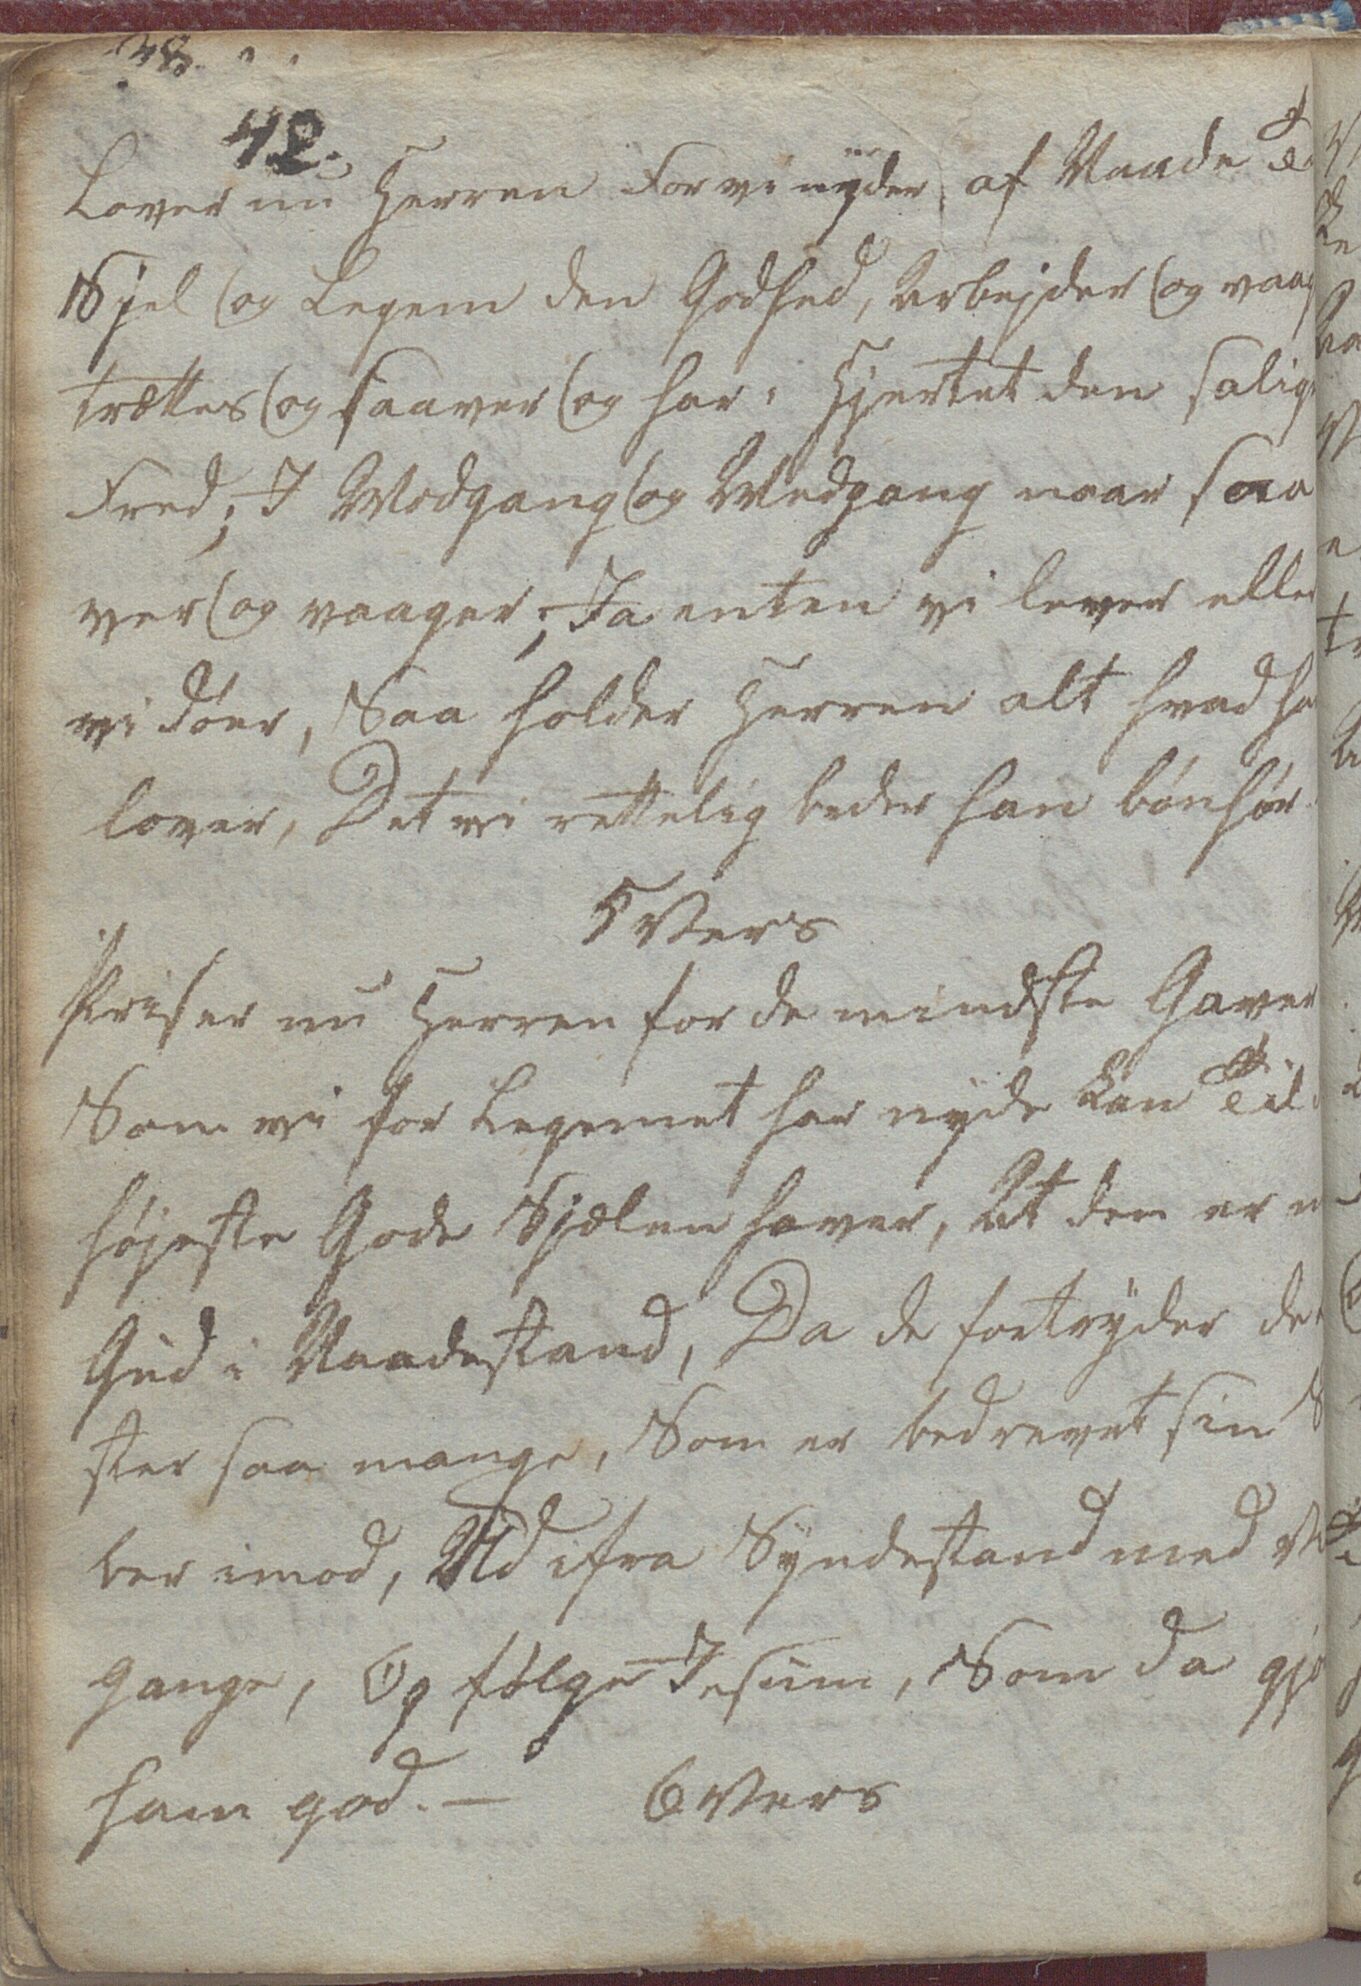 38.
42.
Lover nu Herren For vi nyder af Naade
Sjel og Legem den Godhed, Arbejder og vaag
trættes og saaver og har i Hjertet den salig
Fred; I Modgang og Medgang naar saa
ver og vaager; Ja enten vi lever eller
vi döer, Saa holder Herren alt hvad ha
lover, Det vi rettelig beder han bönhör
5 Vers
Priser nu Herren for de mindste Gaver
Som vi for Legemet har nyde kan Til
højeste Gode Sjælen haver, At den er
Gud i Naadestand, Da de fortryder de
ster saa mange, Som er bedrevet sin
ber imod, Ud ifra Syndestand med
gange, Og fölge Jesum, Som da gjö
ham god. — 6 Vers